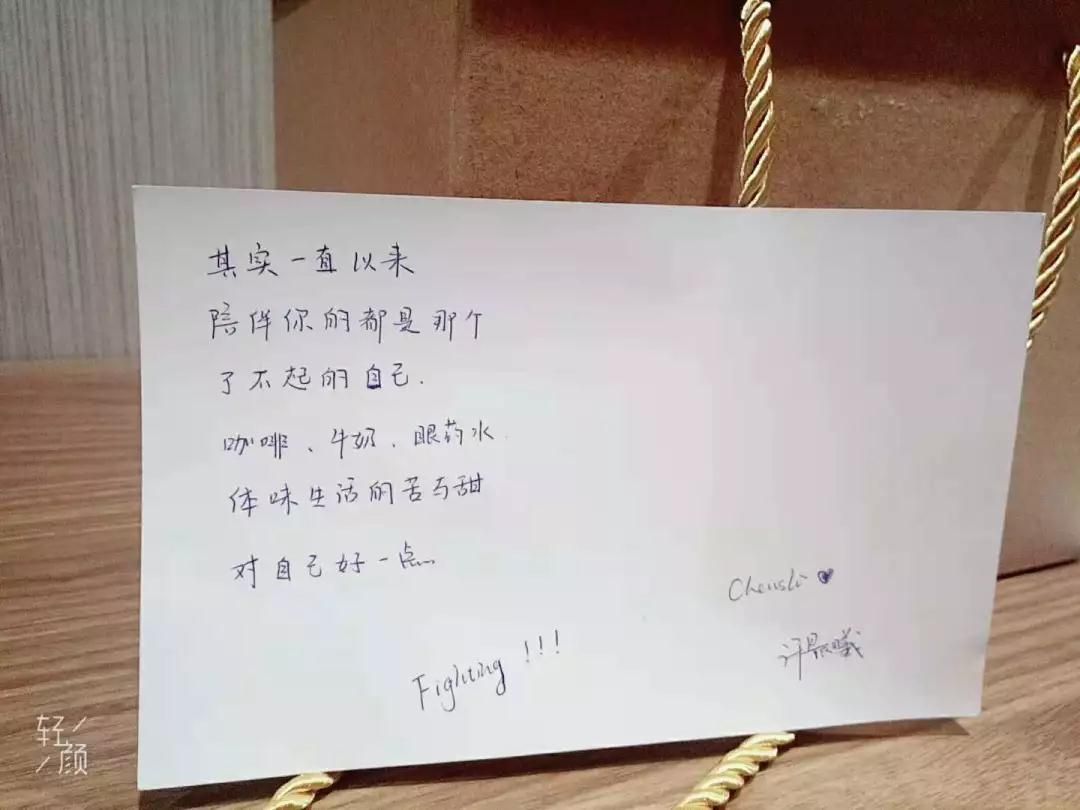 其实一直以来
陪伴你的都是那个
了不起的自己.
咖啡、牛奶、眼药水.
体味生活的苦与甜
对自己好一点.
Fighting!!!
轻颜